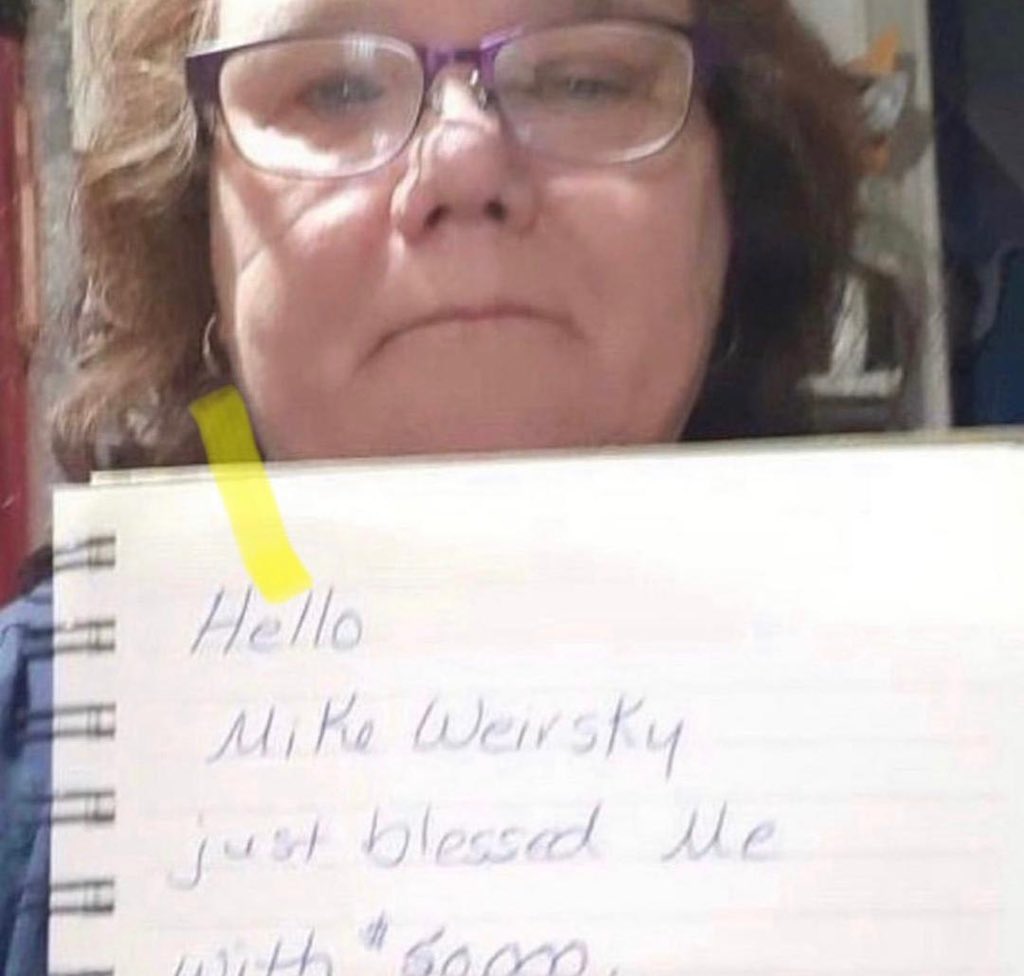 Hello
Mike Weirsky
just blessed Me
with $